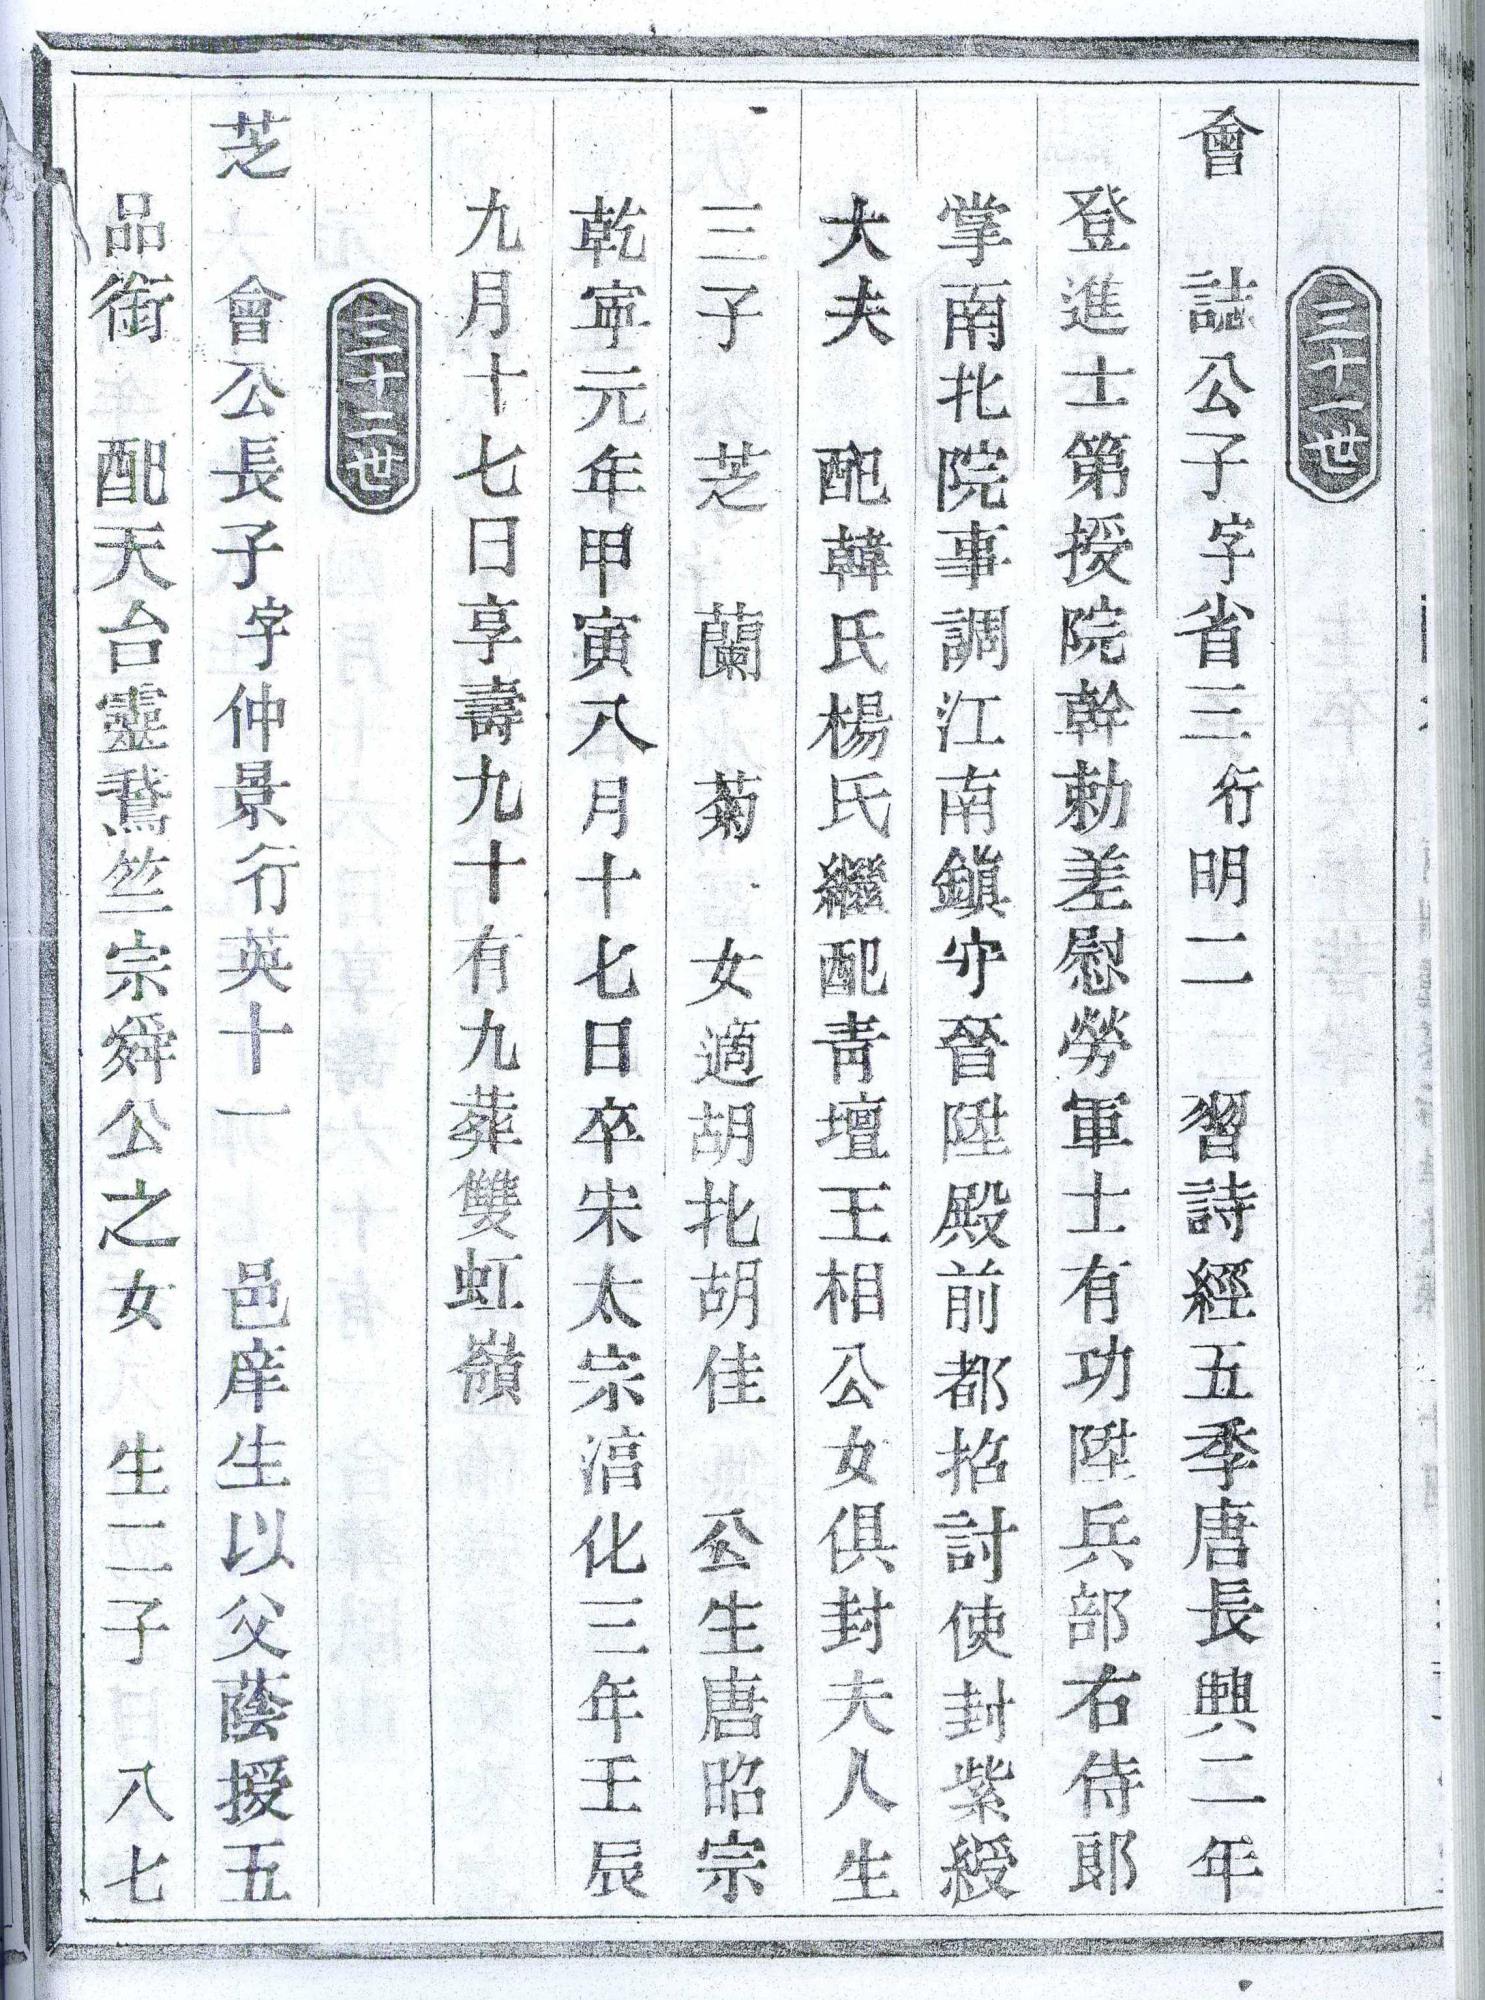 三十一世
會 誌公子字省三行明二 習詩經五季唐長興二年
登進士第授院幹勅差慰勞軍士有功陞兵部右侍郞
掌南北院事調江南鎭守晉陞殿前都招討使封紫綬
大夫 配韓氏楊氏繼配靑壇王相公女俱封夫人生
三子 芝 蘭 菊 女適胡北胡佳 公生唐昭宗
乾寧元年甲寅八月十七日卒宋太宗淯化三年壬辰
九月十七日享壽九十有九葬雙虹嶺
三十二世
芝 會公長子字仲景行英十一 邑庠生以父蔭授五
品銜 配天台靈鵞竺宗舜公之女 生二子 八七